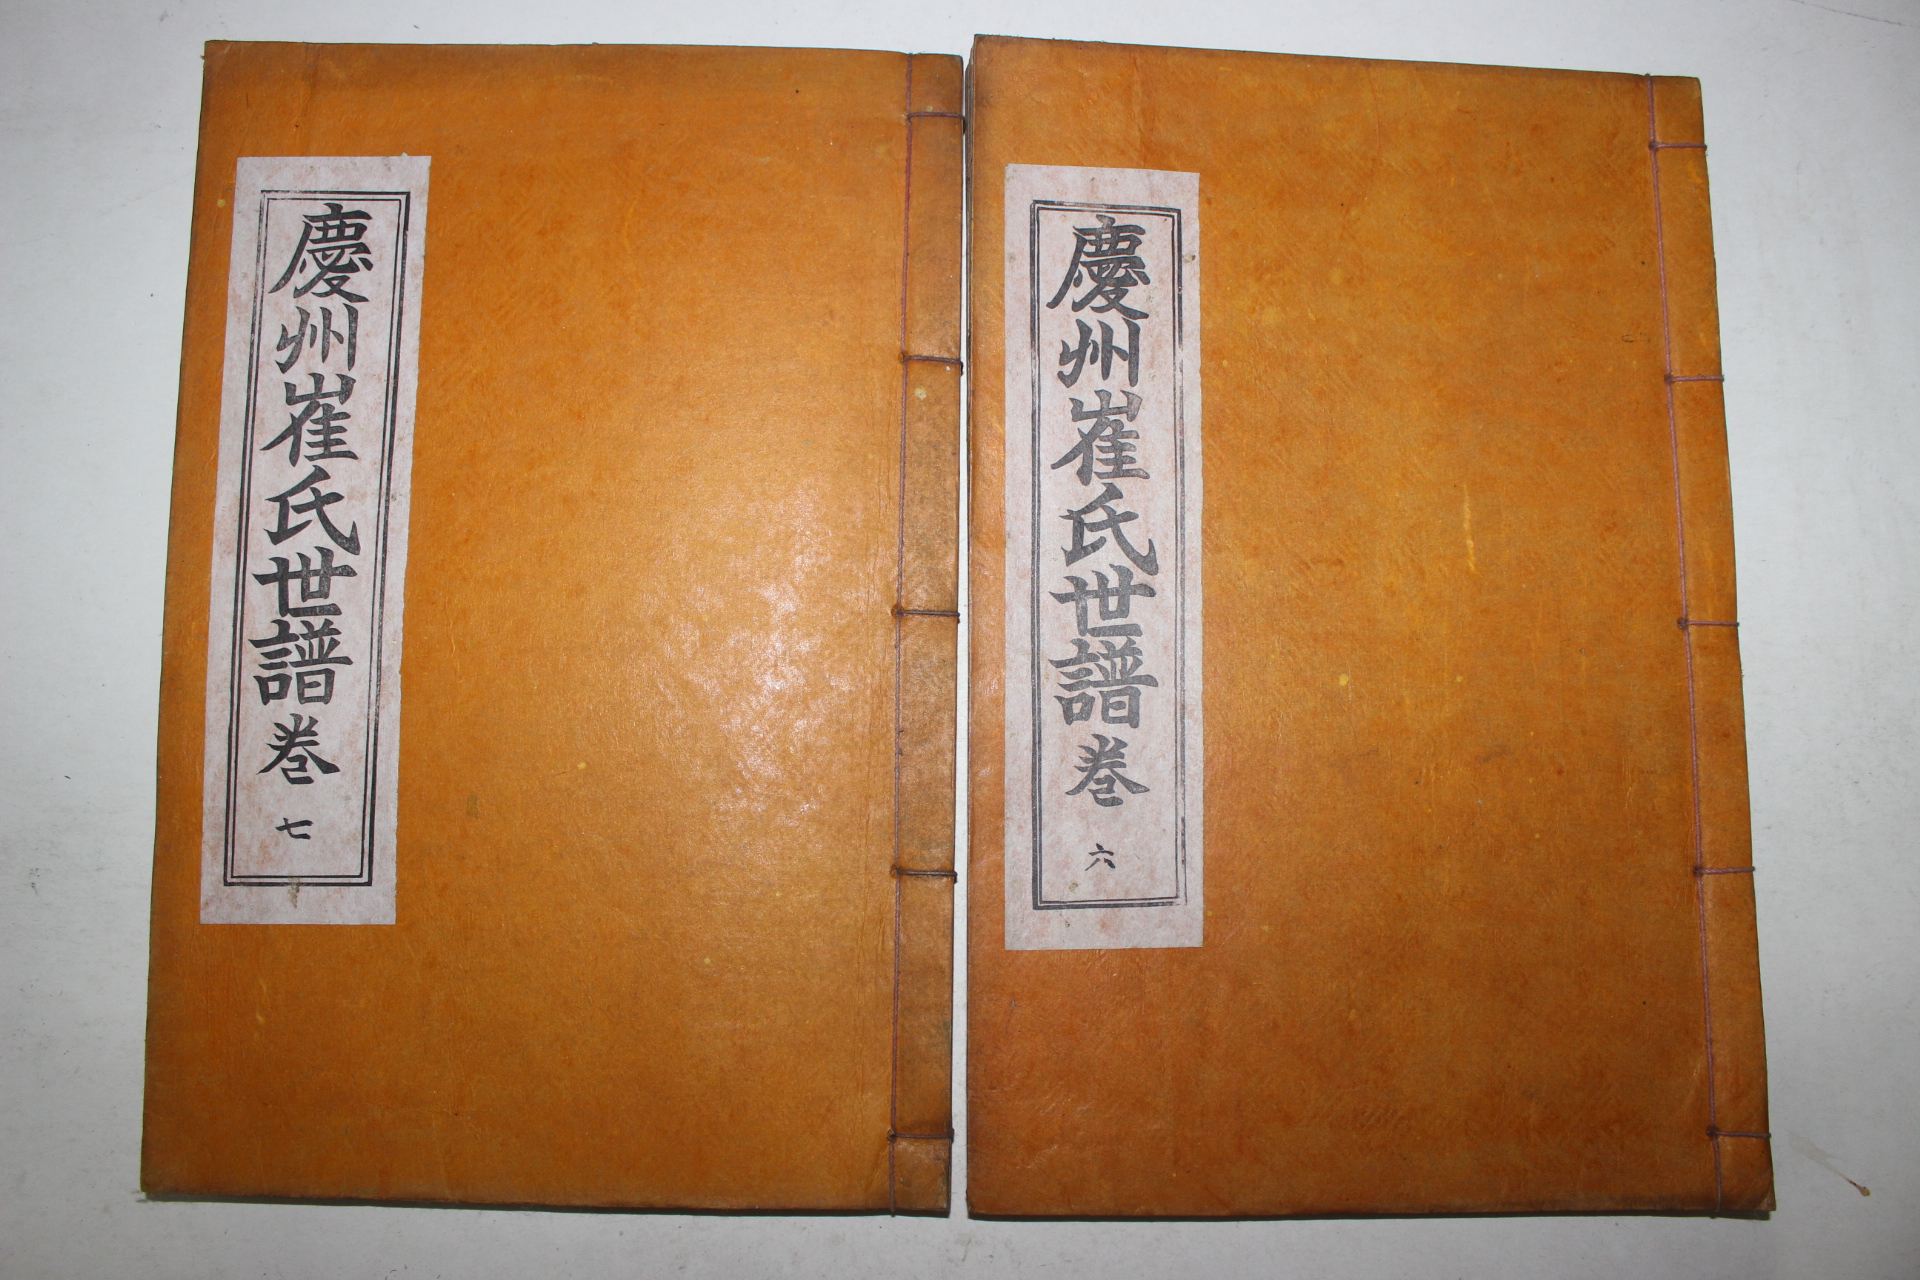 慶州崔氏世譜卷六
慶州崔氏世譜卷七